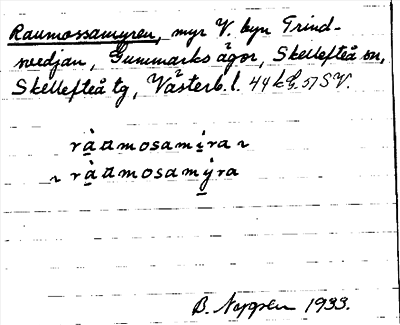 Raumossamyren, myr V. byn Trind-
svedjan, Gummarks ägor, Skellefteå sn,
Skellefteå tg, Västerb. l. 44 k G, 57 SV.
ràamosamíra ~
~ ràamosamýra
B. 1933.